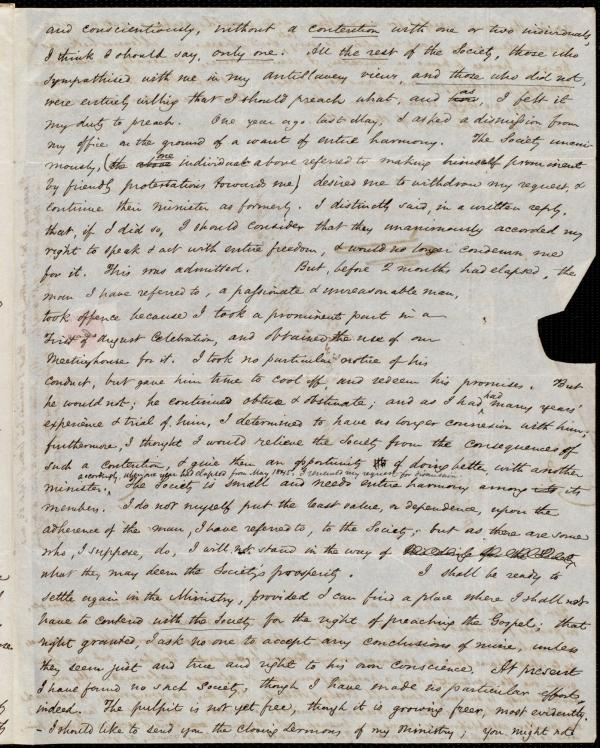 and conscientiously, without a contention with one or two individuals,
I think I should say, only one. All the rest of the Society, those who
sympathised with me in my antislavery views, and those who did not,
were entirely willing that I should preach what, and as, I felt it
my duty to preach. One year ago last May, I asked a dismission from
my office on the ground of a want of entire harmony. The Society unani-
mously, (the one individual above referred to making himself prominent
by friendly protestations towards me) desired me to withdraw my request, &
continue their minister as formerly. I distinctly said, in a written reply,
that, if I did so, I should consider that they unanimously accorded my
right to speak & act with entire freedom, & would no longer condemn me
for it. This was admitted. But, before 2 months had elapsed, the
man I have referred to, a passionate & unreasonable man,
took offence because I took a prominent part in a
First of August Celebration, and obtained the use of our
Meetinghouse for it. I took no particular notice of his
conduct, but gave him time to cool off, and redeem his promises. But
he would not; he continued obtuse & obstinate; and as I had had many years'
experience & trial of him, I determined to have no longer connexion with him;
furthermore, I thought I would relieve the Society from the consequences of
such a contention, & give them an opportunity of doing better with another
minister. accordingly, when one year had elapsed from May 1845, I renewed my request for dismission.
The Society is small and needs entire harmony among its
members. I do not myself put the least value, or dependence, upon the
adherence of the man, I have referred to, to the Society; but as there are some
who, I suppose, do, I will not stand in the way of
what they may deem the Society's prosperity. I shall be ready to
settle again in the Ministry, provided I can find a place where I shall not
have to contend with the Society for the right of preaching the Gospel; that
right granted, I ask no one to accept any conclusions of mine, unless
they seem just and true and right to his own Conscience. At present
I have found no such Society, though I have made no particular efforts,
indeed. The pulpit is not yet free, though it is growing freer, most evidently.
- I should like to send you the closing Sermons of my Ministry; you might not